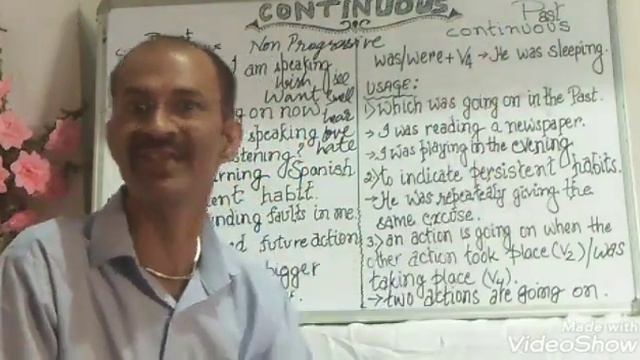 CONTINUOUS
Non Progressive
I am speaking
Wish, see
Want smell
g on now, hear
speaking love
stening? hate
rning Spanish
ent habit.
nding faults in me
d future action
bigger
Past
continuous
was/were + V4 → He was sleeping.
USAGE:
1) Which was going on in the Past.
→ I was reading a newspaper.
→ I was playing in the evening
2) to indicate persistent habits.
→ He was repeatedly giving the
same excuse.
3) an action is going on when the
other action took place (V2)/was
taking place (V4).
→ two actions are going on.
Made with
VideoShow